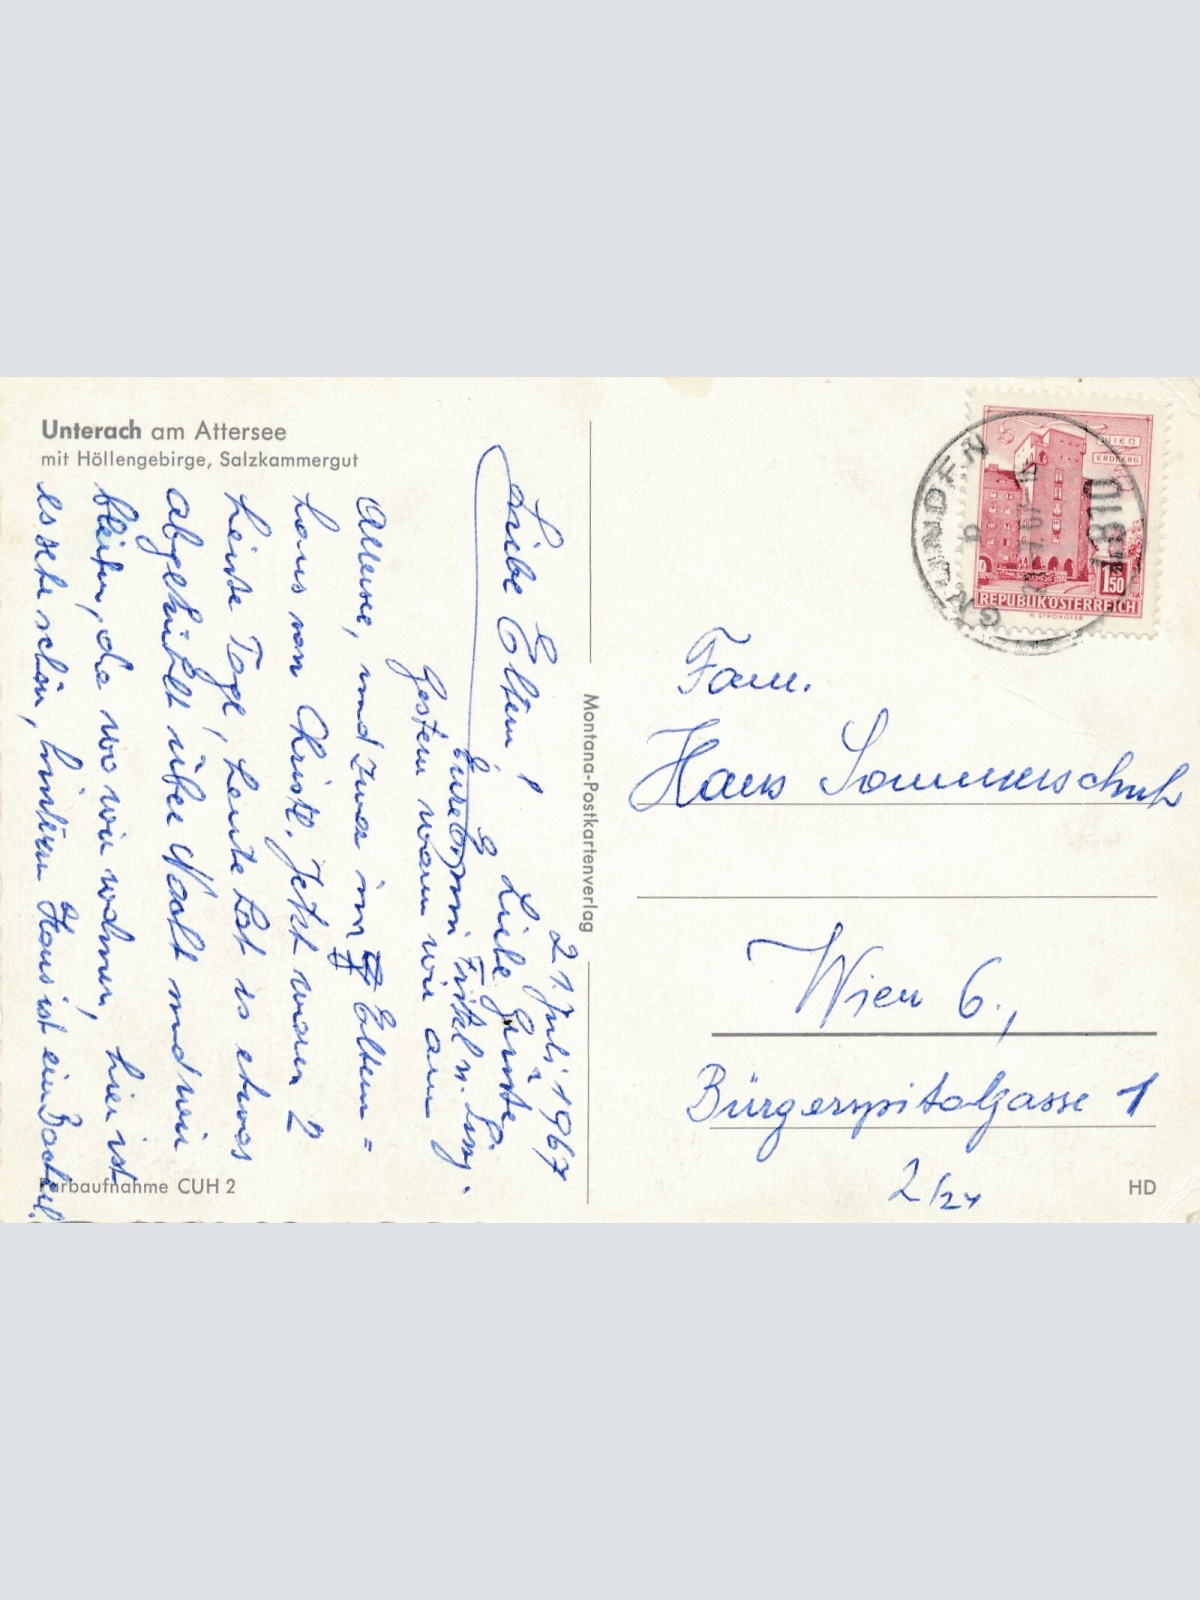 Unterach am Attersee
mit Höllengebirge, Salzkammergut
21. Juli 1967
Liebe Eltern! Liebe Grüße
Eure Fritzl u. Lisy.
Gestern waren wir am
Attersee, und zwar im Eltern=
haus von Christl. Jetzt waren 2
heiße Tage, heute hat es etwas
abgekühlt über Nacht und wir
bleiben, da wo wir wohnen, hier ist
es sehr schön, hinterm Haus ist ein Bacherl.
Farbaufnahme CUH 2
Montana-Postkartenverlag
GMUNDEN
b
21.7.67-16
4810
WIEN
ERDBERG
1.50
REPUBLIK ÖSTERREICH
H. STROHOFER
Fam.
Hans Sommerschuh
Wien 6.,
Bürgerspitalgasse 1
2/24
HD